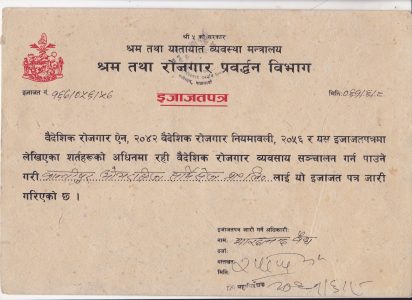 श्री ५ को सरकार
श्रम तथा यातायात व्यवस्था मन्त्रालय
श्रम तथा रोजगार प्रवर्द्धन विभाग
इजाजत नं.
इजाजतपत्र
मिति:
वैदेशिक रोजगार ऐन, २०४२ वैदेशिक रोजगार नियमावली, २०५६ र यस इजाजतपत्रमा
लेखिएका शर्तहरूको अधिनमा रही वैदेशिक रोजगार व्यवसाय सञ्चालन गर्न पाउने
गरी कान्तीपुर ओभरसिज सर्भिसेज प्रा. लि. लाई यो इजाजत पत्र जारी
गरिएको छ ।
इजाजतपत्र जारी गर्ने अधिकारी:
नाम:
दर्जा:
दस्तखत:
मिति: